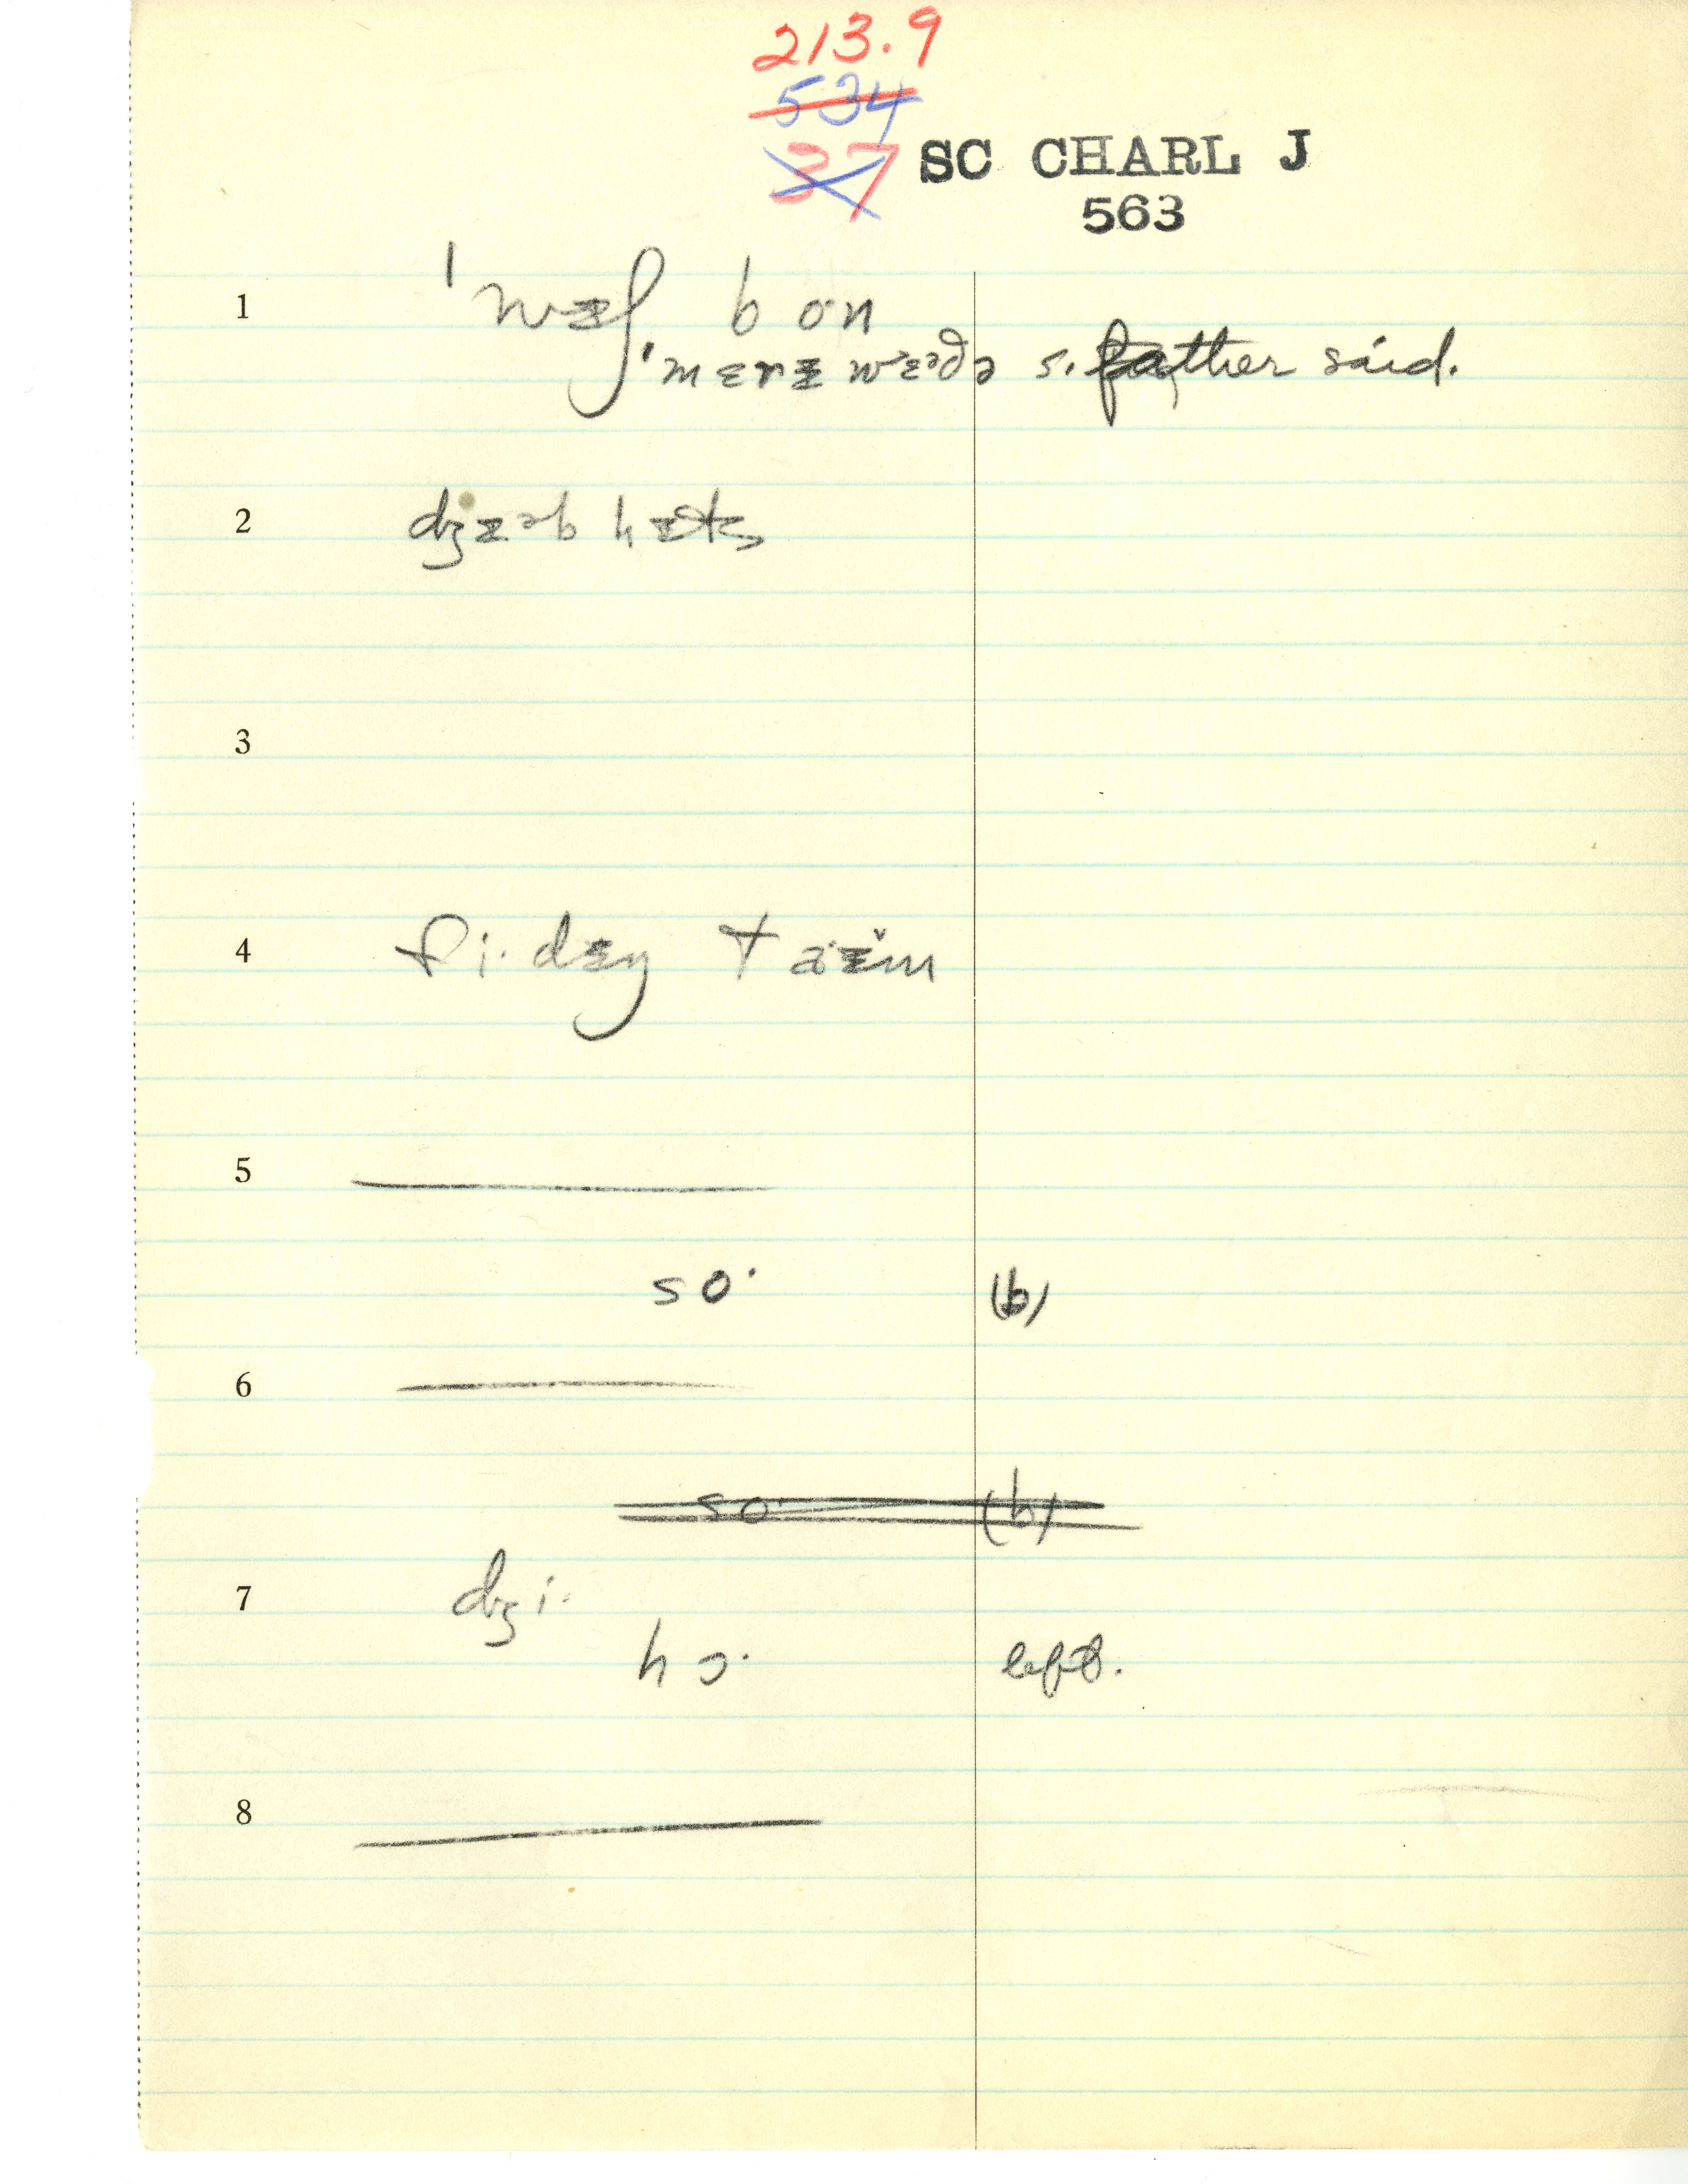 213.9
534
37
SC CHARL J
563
1 ˈwᵻʃ bon
ˈmɛrᵻ wɛəðə s. father said.
2 dʒᵻəb
3
4 fi·dᵻŋ taᵻ̆m
5
so· (b)
6
so· (b)
7 dʒi·
hɔ· left.
8